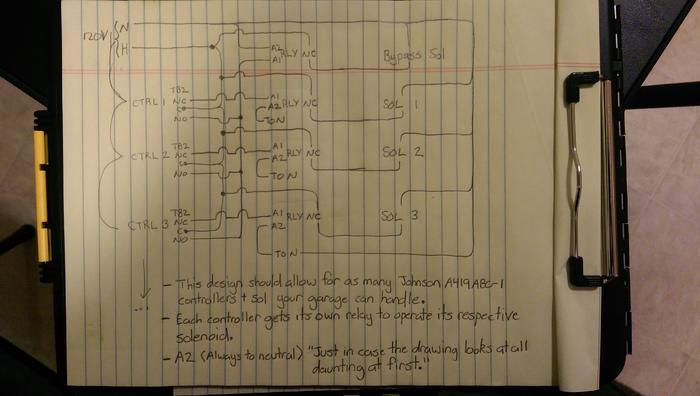 120V N
H
A2 RLY NC
A1
Bypass Sol
CTRL 1 TB2
NC
C
NO
A1 RLY NC
A2
TO N
SOL 1
CTRL 2 TB2
NC
C
NO
A1 RLY NC
A2
TO N
SOL 2
CTRL 3 TB2
NC
C
NO
A1 RLY NC
A2
TO N
SOL 3
...
- This design should allow for as many Johnson A419ABC-1
controllers + sol your garage can handle.
- Each controller gets its own relay to operate its respective
solenoid.
- A2 (Always to neutral) "Just in case the drawing looks at all
daunting at first."